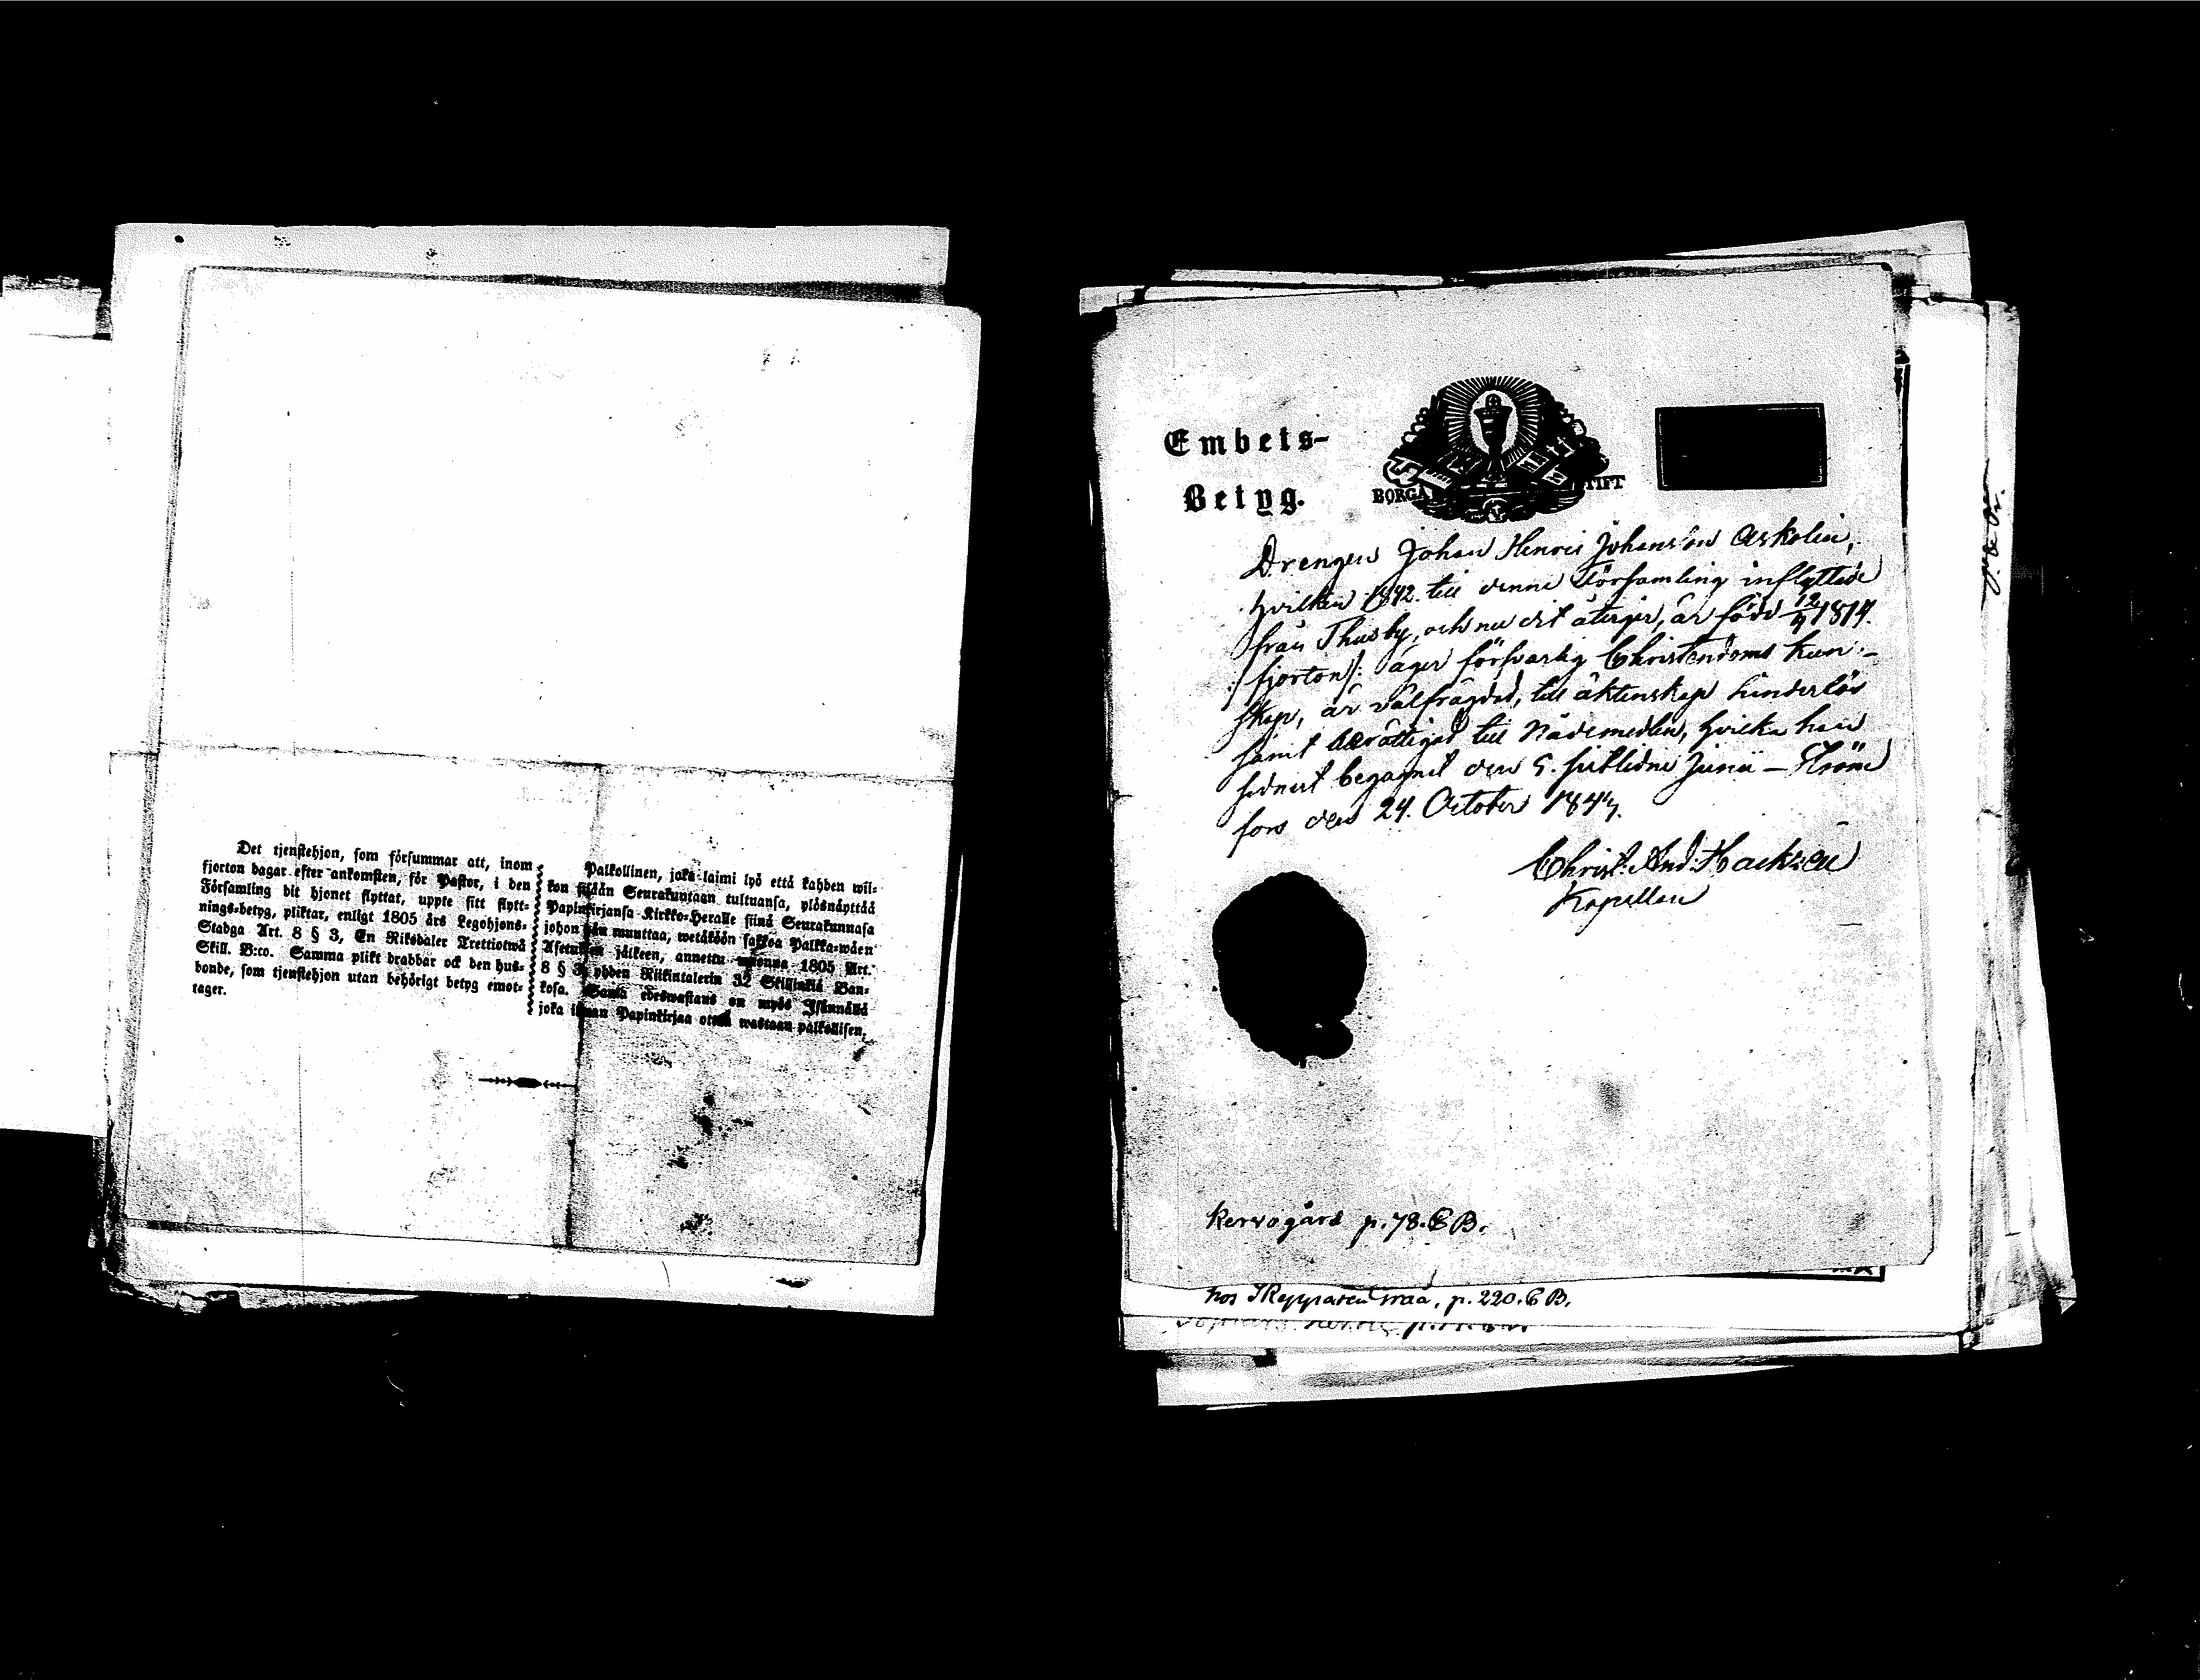 Det tjenstehjon, som försummar att, inom
fjorton dagar efter ankomsten, för Pastor, i den
Församling dit hjonet flyttat, uppte sitt flytt-
nings-betyg, pliktar, enligt 1805 års Legohjons-
Stadga Art. 8 § 3, En Riksdaler Trettiotwå
Skill. B:co. Samma plikt drabbar ock den hus-
bonde, som tjenstehjon utan behörigt betyg emot-
tager.
Palkollinen, joka laimi lyö että kahden wii-
kon sisään Seurakuntaan tultuansa, ylösnäyttää
Papinkirjansa Kirkko-Heralle siinä Seurakunnasa
johon hän muuttaa, wetäköön sakkoa Palkka-wäen
Asetuksen jälkeen, annettu wuonna 1805 Art.
8 § 3, yhden Riikintalerin 32 Skillinkiä Ban-
kosa. Sama edeswastaus on myös Isännällä
joka ilman Papinkirjaa ottaa wastaan palkollisen.
Embets-
Betyg.
BORGÅ STIFT
Drengen Johan Henric Johansson Askolin,
hvilken 1842 till denna Församling inflyttade
från Thusby, och nu dit återgår, är född 12/4 1814.
/: fjorton :/ äger försvarlig Christendoms kun-
skap, är välfrägdad, till äktenskap hinderlös
samt berättigad till Nådemedlen, hvilka han
sednast begagnat den 5. sistlidne Junii – Ström
fors den 24. October 1847.
Christ: And: Hackzell
Kapellan
Kervo gård p. 78. C B.
hos Skepparen p. 220. C B.